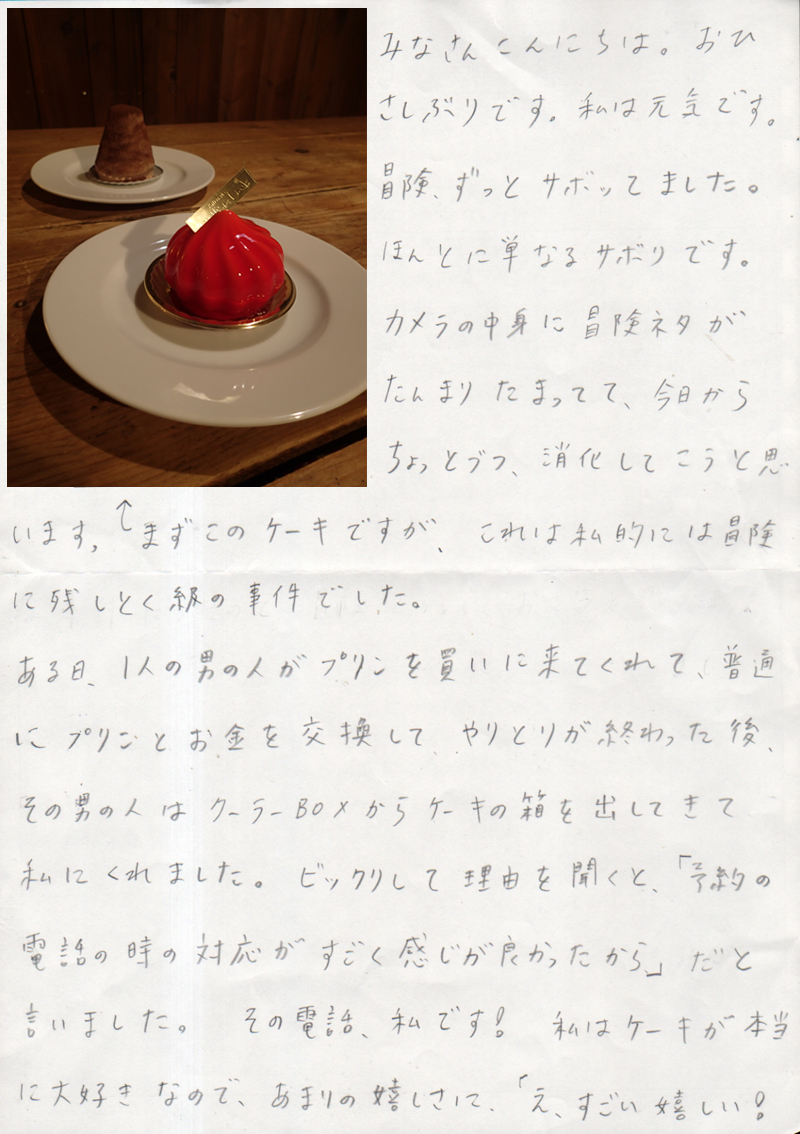 みなさんこんにちは。おひ
さしぶりです。私は元気です。
冒険、ずっとサボッてました。
ほんとに単なるサボリです。
カメラの中身に冒険ネタが
たんまりたまってて、今日から
ちょっとづつ、消化してこうと思
います。↑まずこのケーキですが、これは私的には冒険
に残しとく級の事件でした。
ある日、1人の男の人がプリンを買いに来てくれて、普通
にプリンとお金を交換して、やりとりが終わった後、
その男の人はクーラーBOXからケーキの箱を出してきて
私にくれました。ビックリして理由を聞くと、「予約の
電話の時の対応がすごく感じが良かったから」だと
言いました。 その電話、私です! 私はケーキが本当
に大好きなので、あまりの嬉しさに、「え、すごい嬉しい!